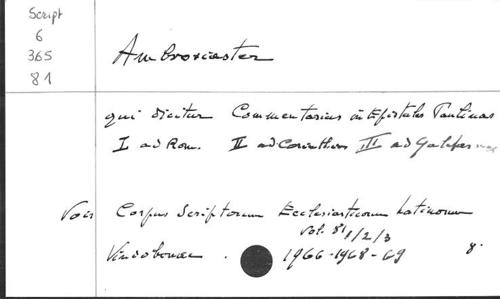 Script
6
365
81
Ambrosiaster
qui dicitur Commentarius in Epistulas Paulinas
I ad Rom. II ad Corinthios III ad Galatas
Voir Corpus Scriptorum Ecclesiasticorum Latinorum
vol. 81 1/2/3
Vindobonae . 1966-1968-69 8°